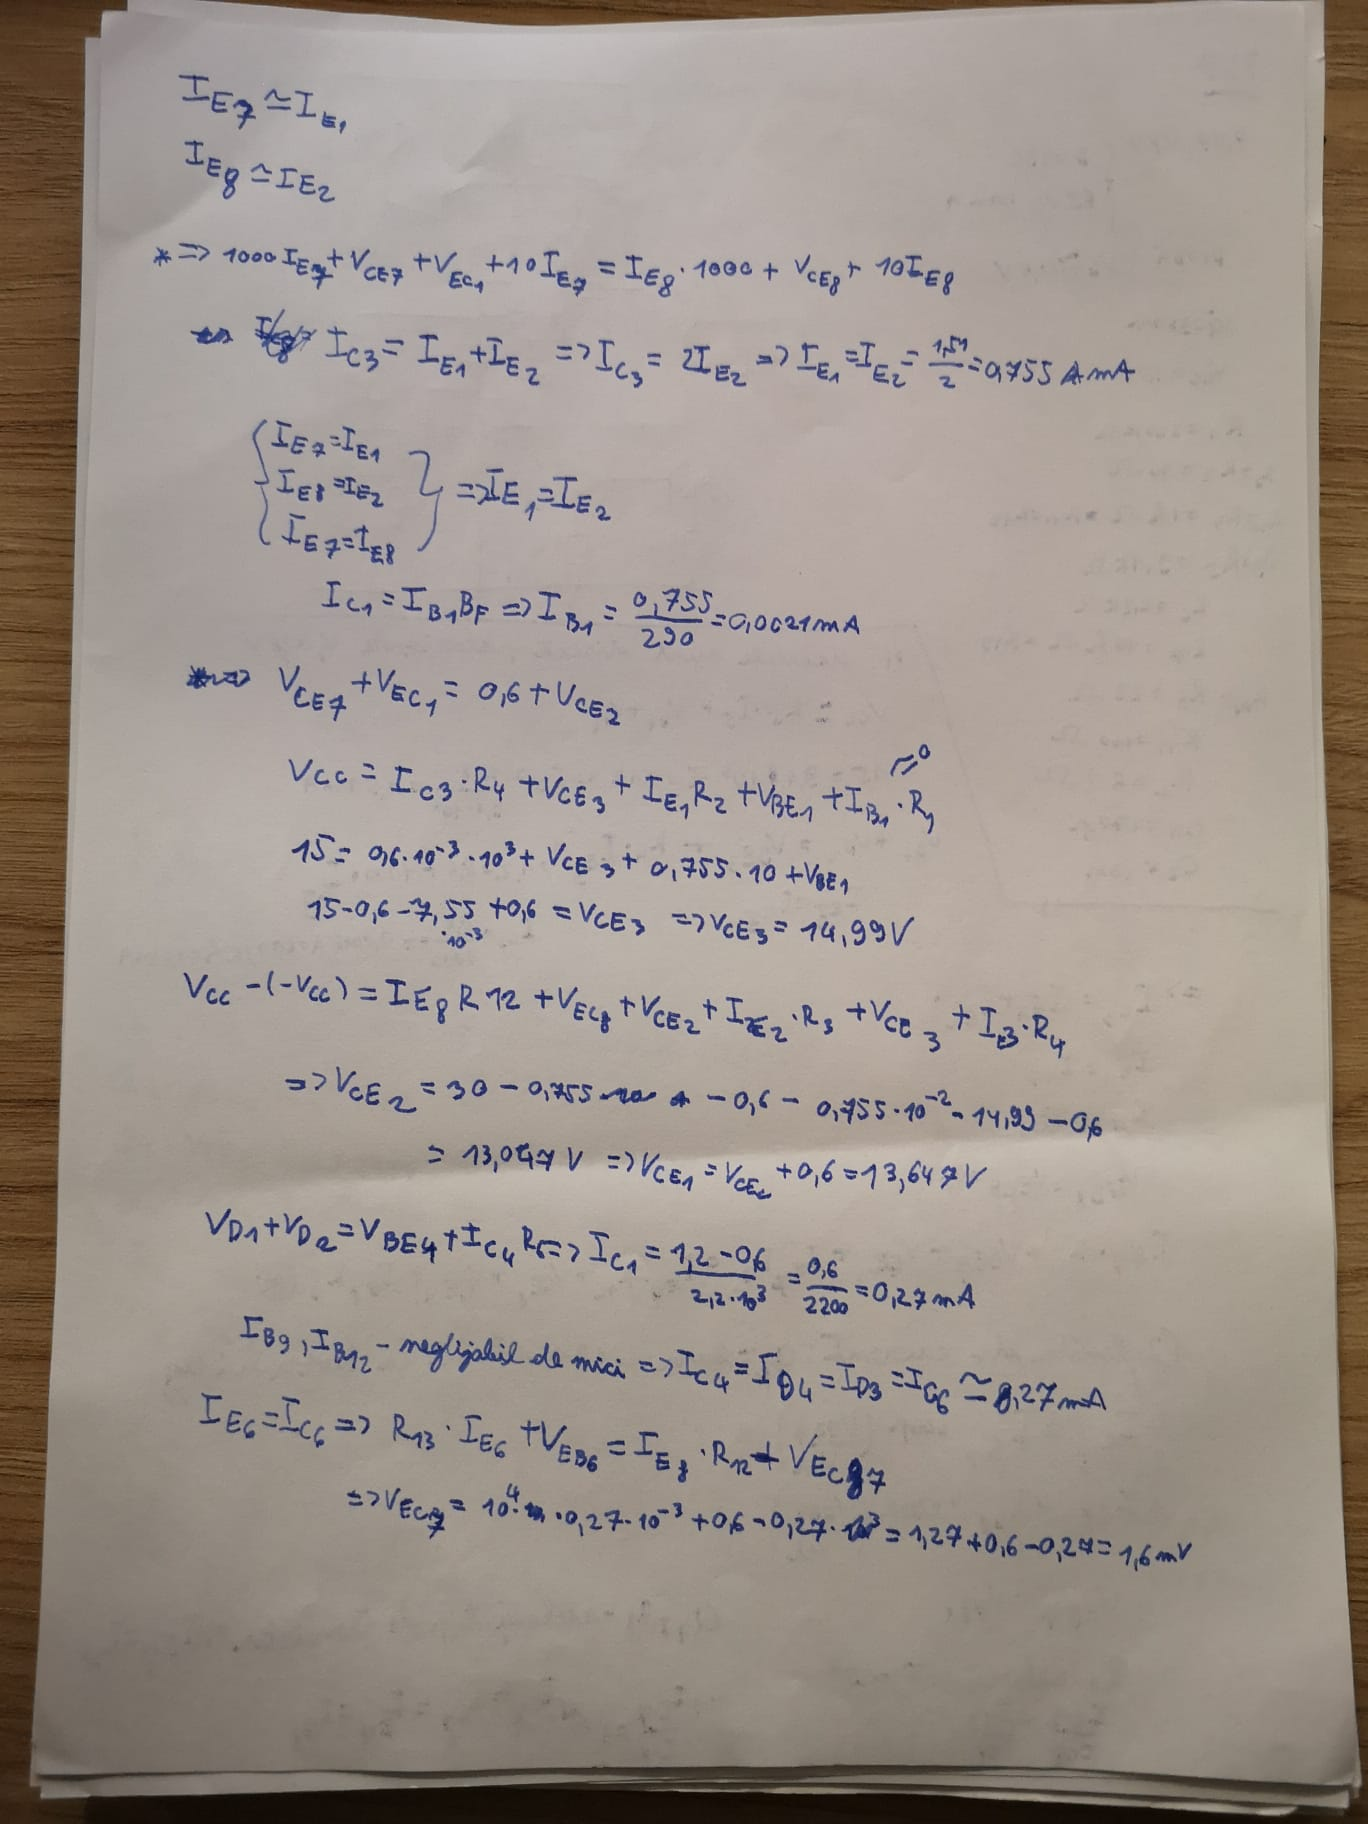 I_E7 ≃ I_E1
I_E8 ≃ I_E2
* => 1000 I_E7 + V_CE7 + V_EC1 + 10 I_E7 = I_E8 · 1000 + V_CE8 + 10 I_E8
I_C3 = I_E1 + I_E2 => I_C3 = 2 I_E2 => I_E1 = I_E2 = 1,51/2 = 0,755 mA
{ I_E7 = I_E1
I_E8 = I_E2 } => I_E1 = I_E2
I_E7 = I_E8
I_C1 = I_B1 B_F => I_B1 = 0,755/290 = 0,0021 mA
=> V_CE7 + V_EC1 = 0,6 + V_CE2
V_CC = I_C3 · R4 + V_CE3 + I_E1 R2 + V_BE1 + I_B1 · R1 ≃0
15 = 0,6 · 10^-3 · 10^3 + V_CE3 + 0,755 · 10 + V_BE1
15 - 0,6 - 7,55 · 10^-3 + 0,6 = V_CE3 => V_CE3 = 14,99 V
V_CC - (-V_CC) = I_E8 R12 + V_EC8 + V_CE2 + I_E2 · R3 + V_CE3 + I_E3 · R4
=> V_CE2 = 30 - 0,755 - 0,6 - 0,755 · 10^-2 - 14,99 - 0,6
= 13,047 V => V_CE1 = V_CE2 + 0,6 = 13,647 V
V_D1 + V_D2 = V_BE4 + I_C4 R5 => I_C1 = (1,2 - 0,6)/(2,2 · 10^3) = 0,6/2200 = 0,27 mA
I_B9, I_B12 - neglijabil de mici => I_C4 = I_D4 = I_D3 = I_C6 ≃ 0,27 mA
I_E6 = I_C6 => R13 · I_E6 + V_EB6 = I_E8 · R12 + V_EC7
=> V_EC7 = 10^4 · 0,27 · 10^-3 + 0,6 - 0,27 · 10^3 = 1,27 + 0,6 - 0,27 = 1,6 mV